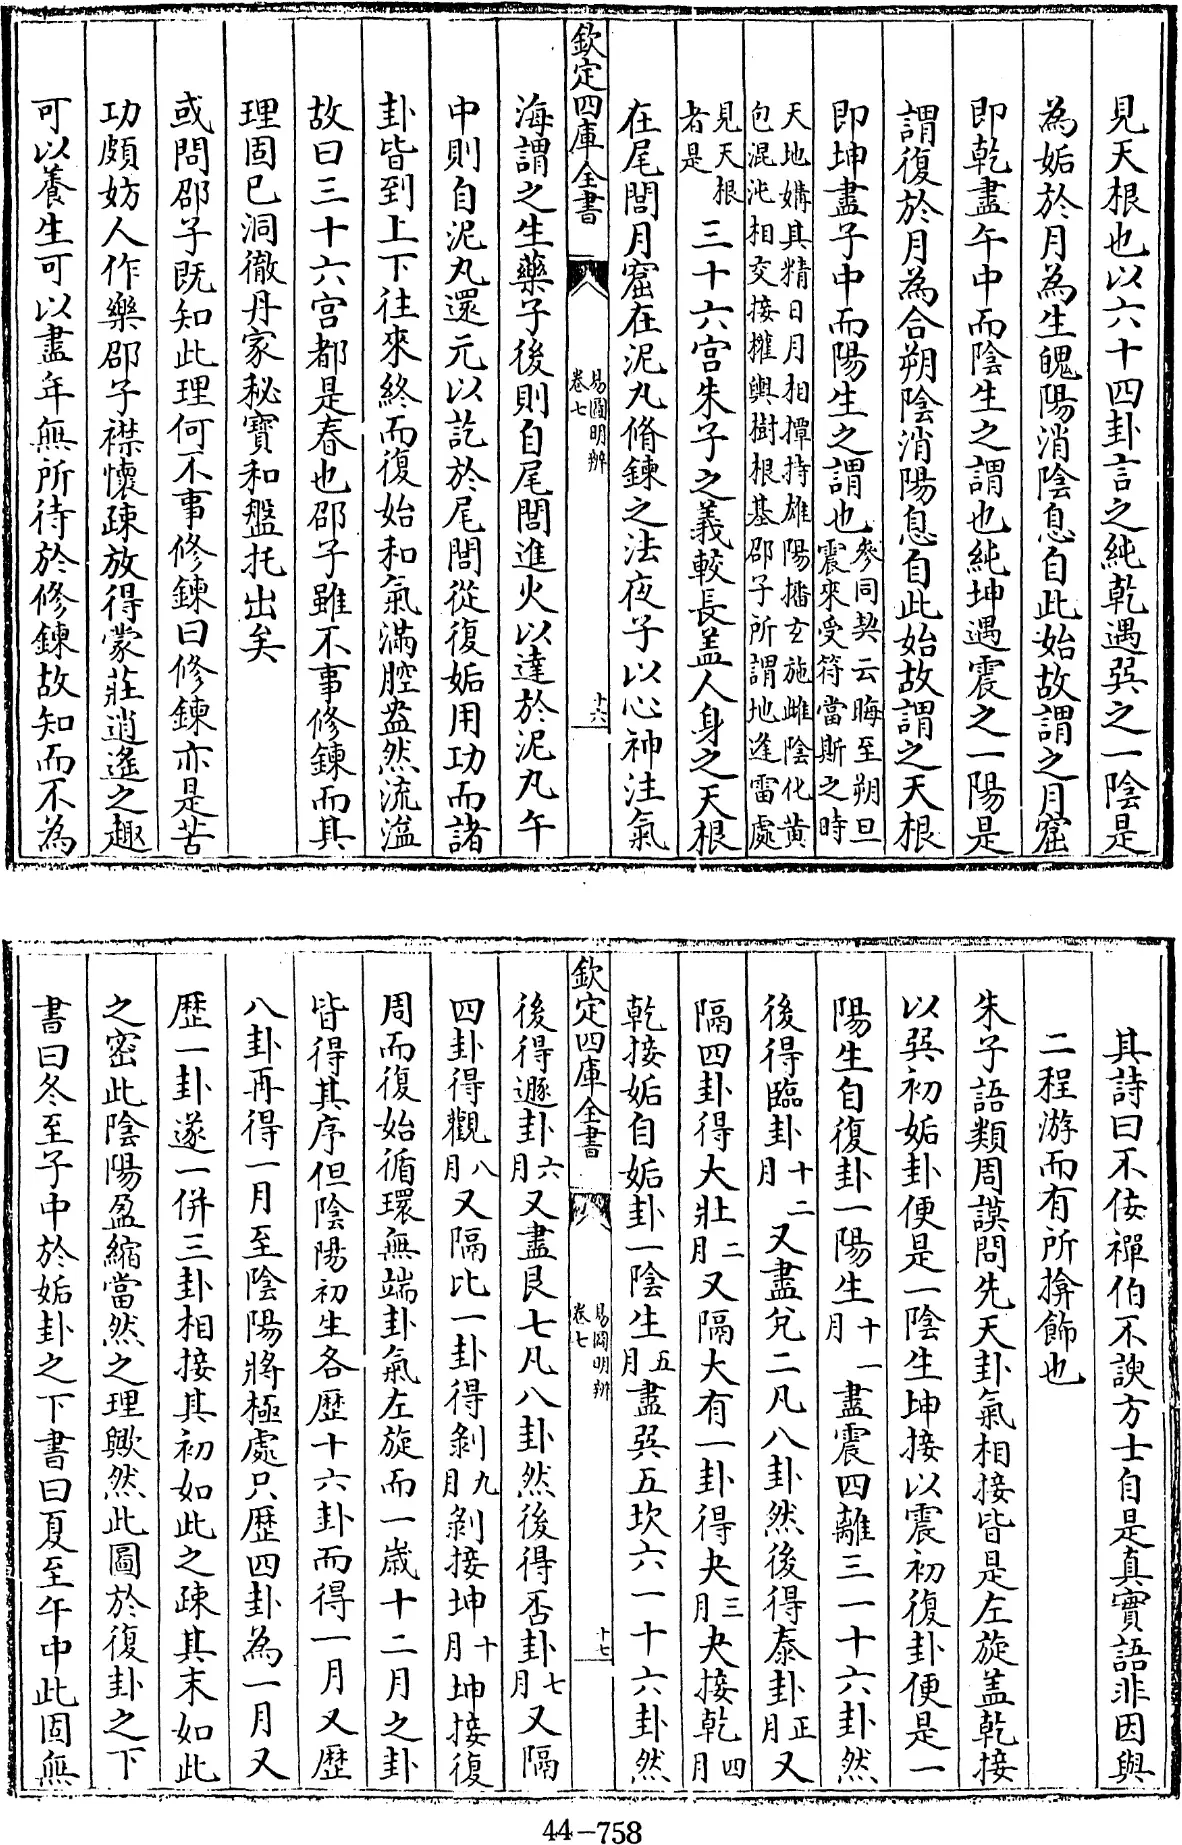 見天根也以六十四卦言之純乾遇巽之一陰是
為姤於月為生魄陽消陰息自此始故謂之月窟
即乾盡午中而陰生之謂也純坤遇震之一陽是
謂復於月為合朔陰消陽息自此始故謂之天根
即坤盡子中而陽生之謂也參同契云晦至朔旦
震來受符當斯之時
天地媾其精日月相撢持雄陽播玄施雌陰化黄
包混沌相交接權輿樹根基邵子所謂地逢雷處
見天根
者是
三十六宫朱子之義較長盖人身之天根
在尾閭月窟在泥丸脩鍊之法夜子以心神注氣
欽定四庫全書
易圖明辨
卷七
十六
海謂之生藥子後則自尾閭進火以達於泥丸午
中則自泥丸還元以訖於尾閭從復姤用功而諸
卦皆到上下往來終而復始和氣滿腔盎然流溢
故曰三十六宫都是春也邵子雖不事修鍊而其
理固已洞徹丹家秘寶和盤托出矣
或問邵子既知此理何不事修鍊曰修鍊亦是苦
功頗妨人作樂邵子襟懷疎放得蒙莊逍遙之趣
可以養生可以盡年無所待於修鍊故知而不為
其詩曰不佞禪伯不諛方士自是真實語非因與
二程游而有所揜飾也
朱子語類周謨問先天卦氣相接皆是左旋盖乾接
以巽初姤卦便是一陰生坤接以震初復卦便是一
陽生自復卦一陽生十一月盡震四離三一十六卦然
後得臨卦十二月又盡兌二凡八卦然後得泰卦正月又
隔四卦得大壯二月又隔大有一卦得夬三月夬接乾四月
乾接姤自姤卦一陰生五月盡巽五坎六一十六卦然
欽定四庫全書
易圖明辨
卷七
十七
後得遯卦六月又盡艮七凡八卦然後得否卦七月又隔
四卦得觀八月又隔比一卦得剝九月剝接坤十月坤接復
周而復始循環無端卦氣左旋而一歲十二月之卦
皆得其序但陰陽初生各歷十六卦而得一月又歷
八卦再得一月至陰陽將極處只歷四卦為一月又
歷一卦遂一併三卦相接其初如此之疎其末如此
之密此陰陽盈縮當然之理歟然此圖於復卦之下
書曰冬至子中於姤卦之下書曰夏至午中此固無
44-758